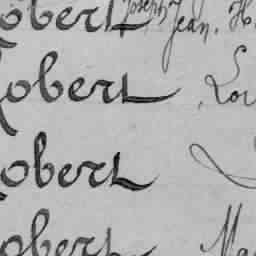 Robert Joseph Jean, H
Robert, Lou
Robert
Robert Ma